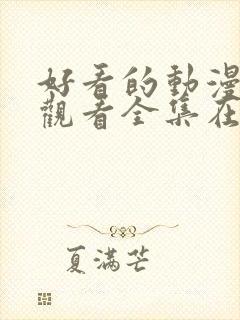 好看的動漫
觀看全集在
夏滿芒